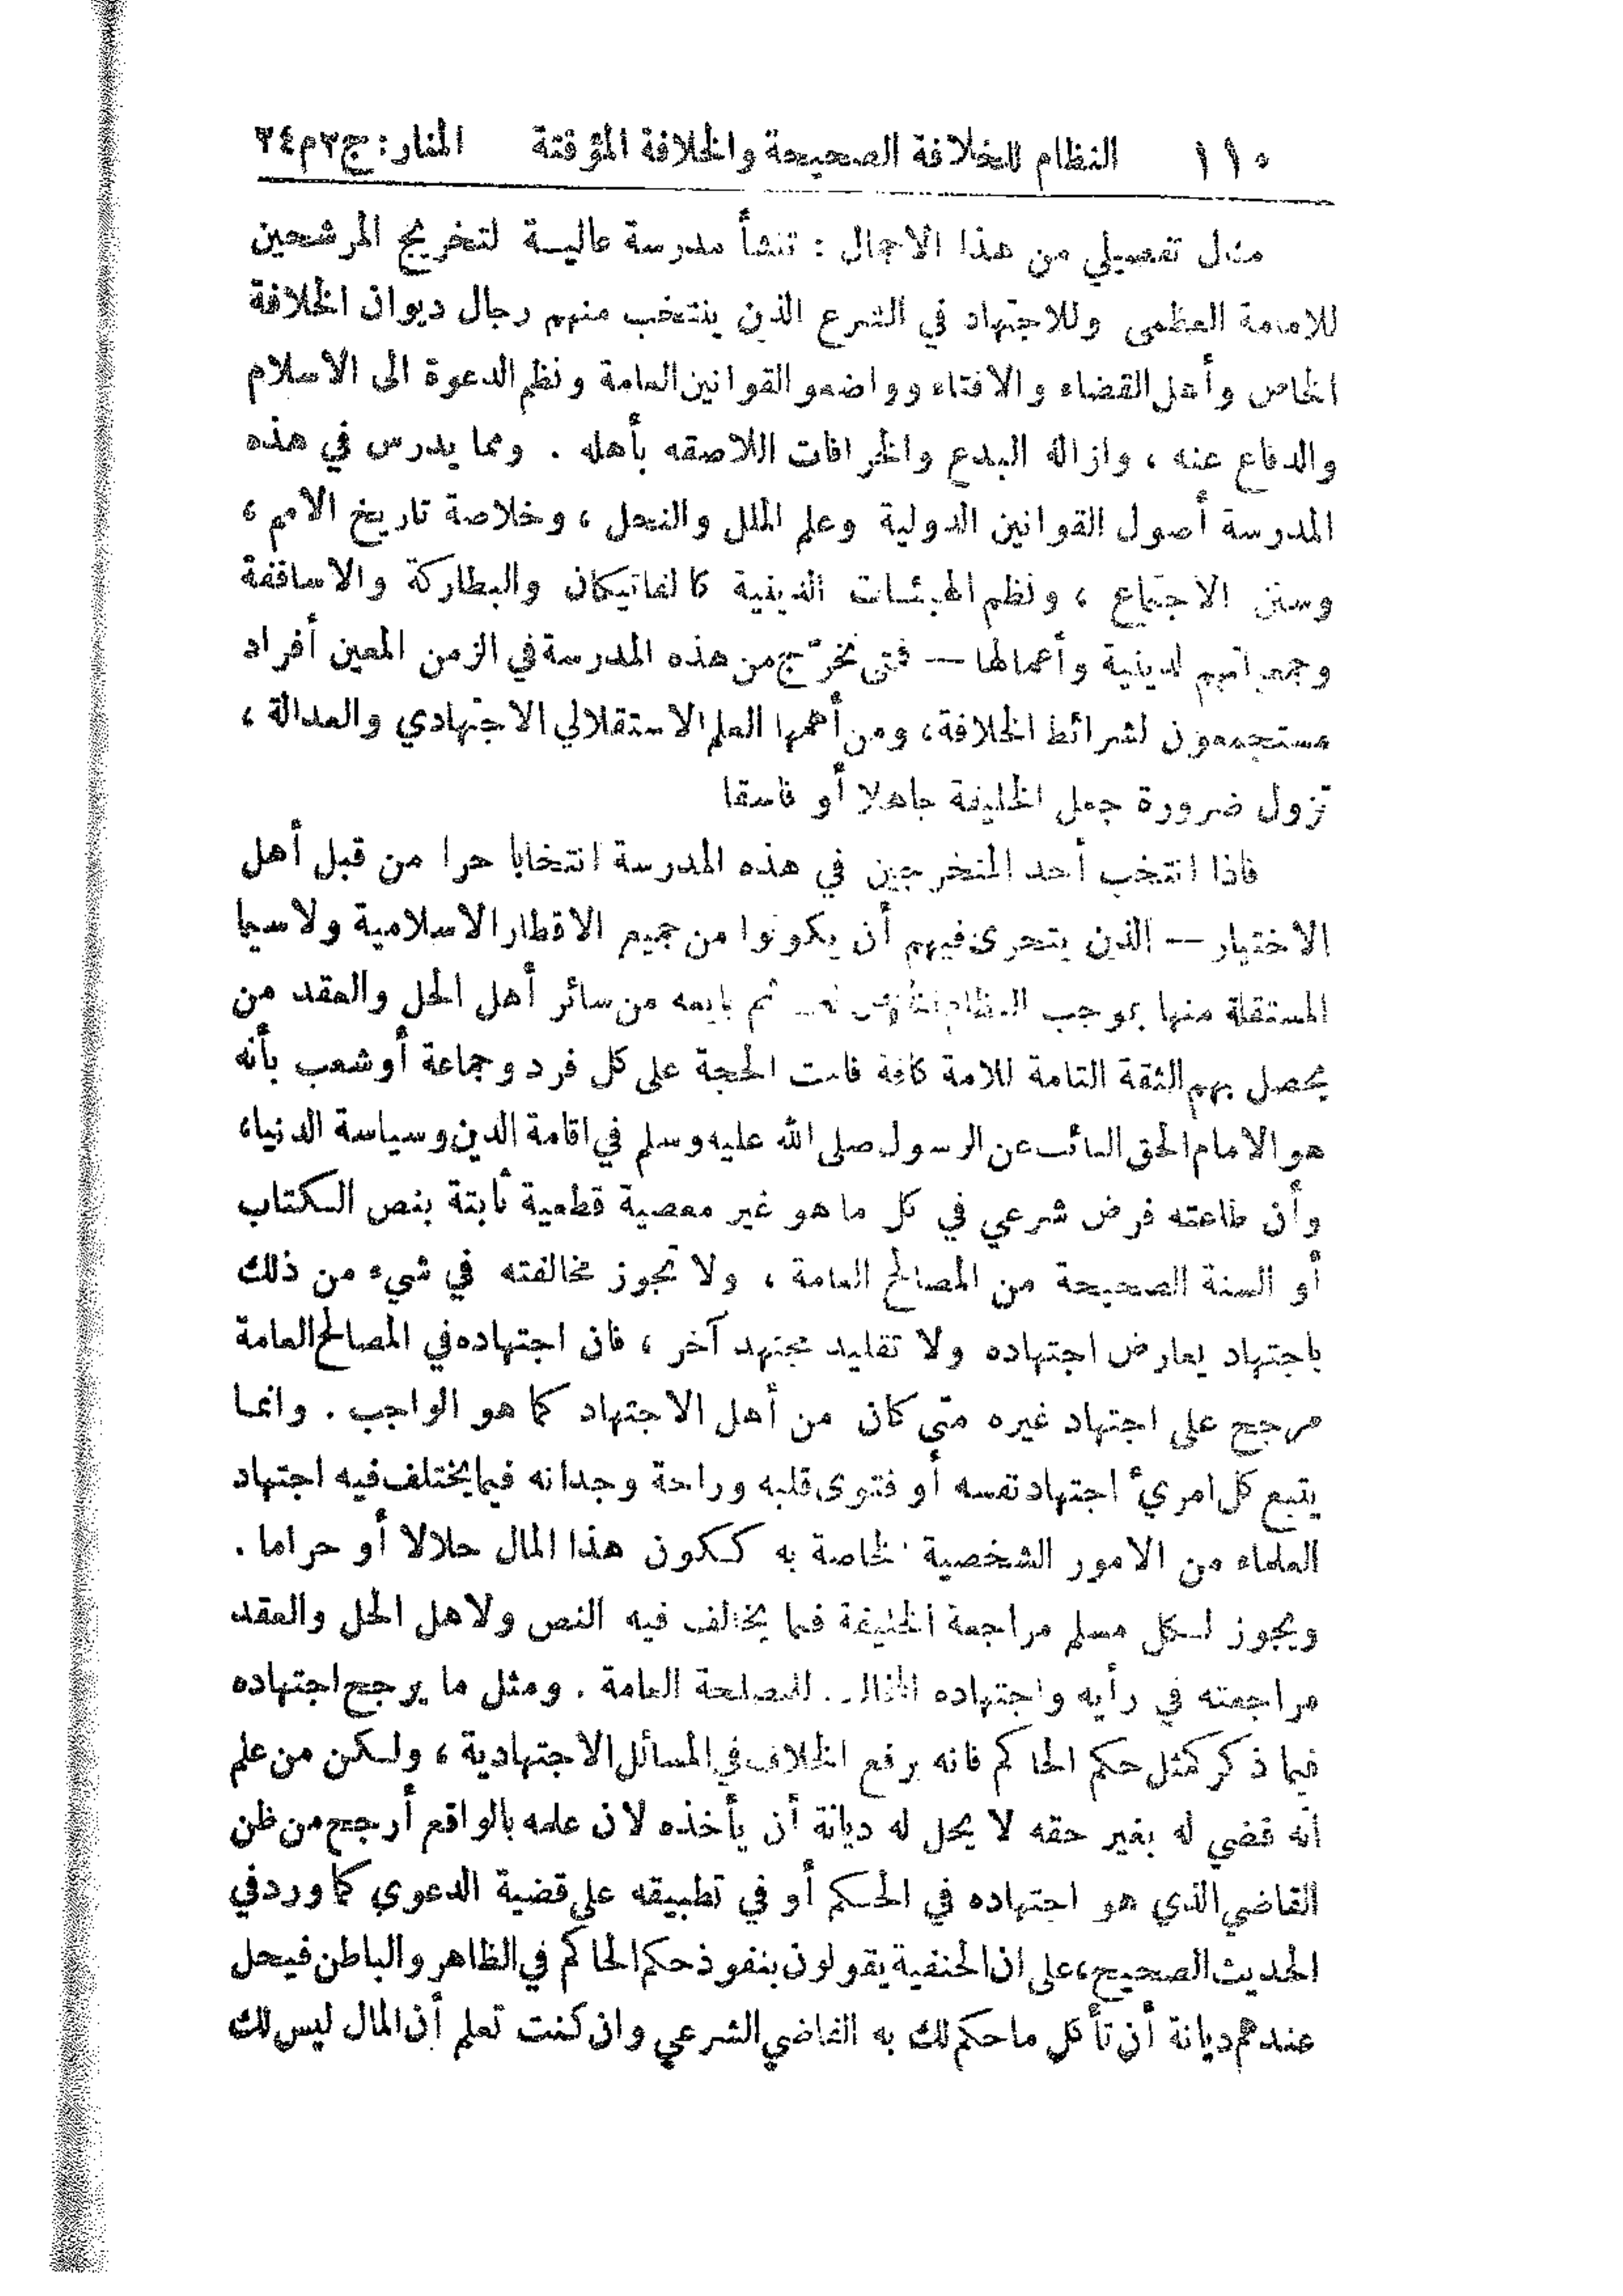 ١١٠ النظام للخلافة الصحيحة والخلافة المؤقتة المنار: ج٢م٢٤
مثل تفصيلي من هذا الاجمال : تنشأ مدرسة عالية لتخريج المرشحين
للامامة العظمى وللاجتهاد في الشرع الذين ينتخب منهم رجال ديوان الخلافة
الخاص وأهل القضاء والافتاء وواضعو القوانين العامة ونظم الدعوة الى الاسلام
والدفاع عنه ، وازالة البدع والخرافات اللاصقه بأهله . ومما يدرس في هذه
المدرسة أصول القوانين الدولية وعلم الملل والنحل ، وخلاصة تاريخ الامم ،
وسنن الاجتماع ، ونظم الهيئات الدينية كالفاتيكان والبطاركة والاساقفة
وجمعياتهم الدينية وأعمالها — فمتى تخرّج من هذه المدرسة في الزمن المعين أفراد
مستجمعون لشرائط الخلافة، ومن أهمها العلم الاستقلالي الاجتهادي والعدالة ،
تزول ضرورة جعل الخليفة جاهلا أو فاسقا
فاذا انتخب أحد المتخرجين في هذه المدرسة انتخابا حرا من قبل أهل
الاختيار — الذين يتحرى فيهم أن يكونوا من جميع الاقطار الاسلامية ولا سيما
المستقلة منها بموجب النظام ثم بايعه من سائر أهل الحل والعقد من
يحصل بهم الثقة التامة للامة كافة قامت الحجة على كل فرد وجماعة أو شعب بأنه
هو الامام الحق النائب عن الرسول صلى الله عليه وسلم في اقامة الدين وسياسة الدنيا،
وأن طاعته فرض شرعي في كل ما هو غير معصية قطعية ثابتة بنص الكتاب
أو السنة الصحيحة من المصالح العامة ، ولا تجوز مخالفته في شيء من ذلك
باجتهاد يعارض اجتهاده ولا تقليد مجتهد آخر ، فان اجتهاده في المصالح العامة
مرجح على اجتهاد غيره متى كان من أهل الاجتهاد كما هو الواجب . وانما
يتبع كل امرئ اجتهاد نفسه أو فتوى قلبه وراحة وجدانه فيما يختلف فيه اجتهاد
العلماء من الامور الشخصية الخاصة به ككون هذا المال حلالا أو حراما .
ويجوز لكل مسلم مراجعة الخليفة فيما يخالف فيه النص ولاهل الحل والعقد
مراجعته في رأيه واجتهاده المخالف للمصلحة العامة . ومثل ما يرجح اجتهاده
فيما ذكر كمثل حكم الحاكم فانه يرفع الخلاف في المسائل الاجتهادية ، ولكن من علم
أنه قضي له بغير حقه لا يحل له ديانة أن يأخذه لان علمه بالواقع أرجح من ظن
القاضي الذي هو اجتهاده في الحكم أو في تطبيقه على قضية الدعوى كما ورد في
الحديث الصحيح، على ان الحنفية يقولون بنفوذ حكم الحاكم في الظاهر والباطن فيحل
عندهم ديانة أن تأكل ما حكم لك به القاضي الشرعي وان كنت تعلم أن المال ليس لك